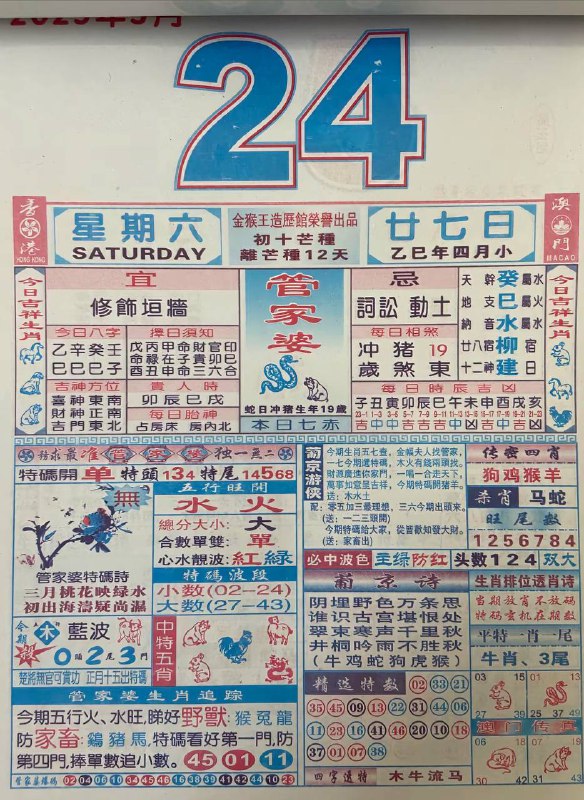 2025年5月
24
香港
HONG KONG
星期六
SATURDAY
金猴王造歷館榮譽出品
初十芒種
離芒種12天
廿七日
乙巳年四月小
澳門
MACAO
今日吉祥生肖
宜
修飾垣牆
今日八字
乙辛癸壬
巳巳巳子
擇日須知
戊丙甲命財官印
命祿在子貴卯巳
酉丑申命三六合
吉神方位
喜神東南
財神正南
吉門東北
貴人時
卯辰巳戌
每日胎神
占房床 房內北
管家婆
蛇日冲豬生年19歲
本日七赤
忌
詞訟 動土
每日相煞
冲豬19
歲煞東
天幹癸屬水
地支巳屬火
納音水
廿八宿柳宿
十二神建日
每日時辰吉凶
子丑寅卯辰巳午未申酉戌亥
23-1 1-3 3-5 5-7 7-9 9-11 11-13 13-15 15-17 17-19 19-21 21-23
今日吉祥生肖
尋求最准管家婆獨一無二
特碼開单特頭134特尾14568
無
管家婆特碼詩
三月桃花映綠水
初出海濤疑尚漏
五行旺開
水 火
總分大小: 大
合數單雙: 單
心水靚波: 紅綠
特碼波段
小數(02-24)
大數(27-43)
今期
木
藍波
0頭2尾3門
楚將無官可賣功 正月十五出特碼
中特五肖
管家婆生肖追踪
今期五行火、水旺,睇好野獸:猴兔龍
防家畜:鷄豬馬,特碼看好第一門,防
第四門,捧單數追小數。45 01 11
管家婆爆碼 02 04 06 10 34 45 46 16 18 19 38 39 41 42 44 10 23
葡京游俠
今期生肖五七查,金帳夫人找管家,
一七今期還特碼,木火有錢兩頭找。
財源廣進你家門,一唱一合走天下,
萬事如意是吉祥,今期特碼開豬羊。
(送):木水土
配:零五加三最理想,三六今期出頭來。
(送:一二三頭開)
今期特碼給大家,從皆歡知發大財。
(送:家畜出)
必中波色 主绿防红 头数124 双大
葡京詩
阴埋野色万条思
谁识古宫堪恨处
翠束寒声千里秋
井桐吟雨不胜秋
(牛鸡蛇狗虎猴)
傳密四肖
狗鸡猴羊
杀肖 马蛇
旺尾数
1256784
生肖排位透肖诗
当期放肖不放码
特码玄机在期数
平特一肖一尾
牛肖、3尾
精选特数 02 33 21
35 45 09 13 12 44 31 22
11 23 16 41 46 20 10 18
37 01 07 38
四字遗特 木牛流马
03 15 01 13
27 39 37 49
澳门传真
06 18 07 19
30 42 31 43